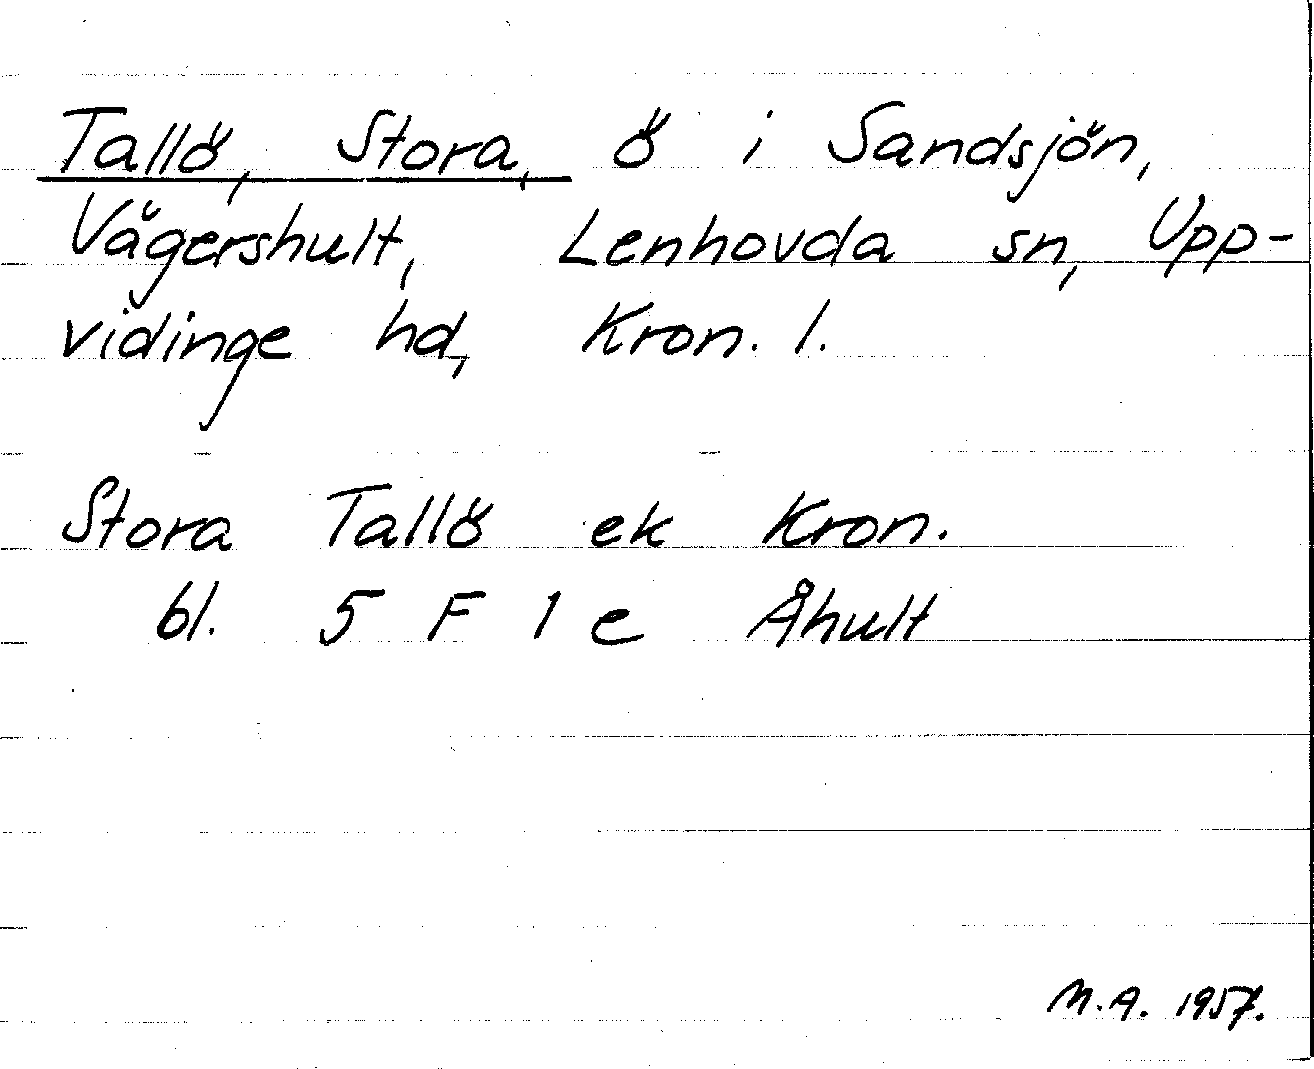 Tallö, Stora, ö i Sandsjön,
Vägershult, Lenhovda sn, Upp-
vidinge hd, Kron. l.
Stora Tallö ek Kron.
bl. 5 F 1 e Åhult
M.A. 1957.